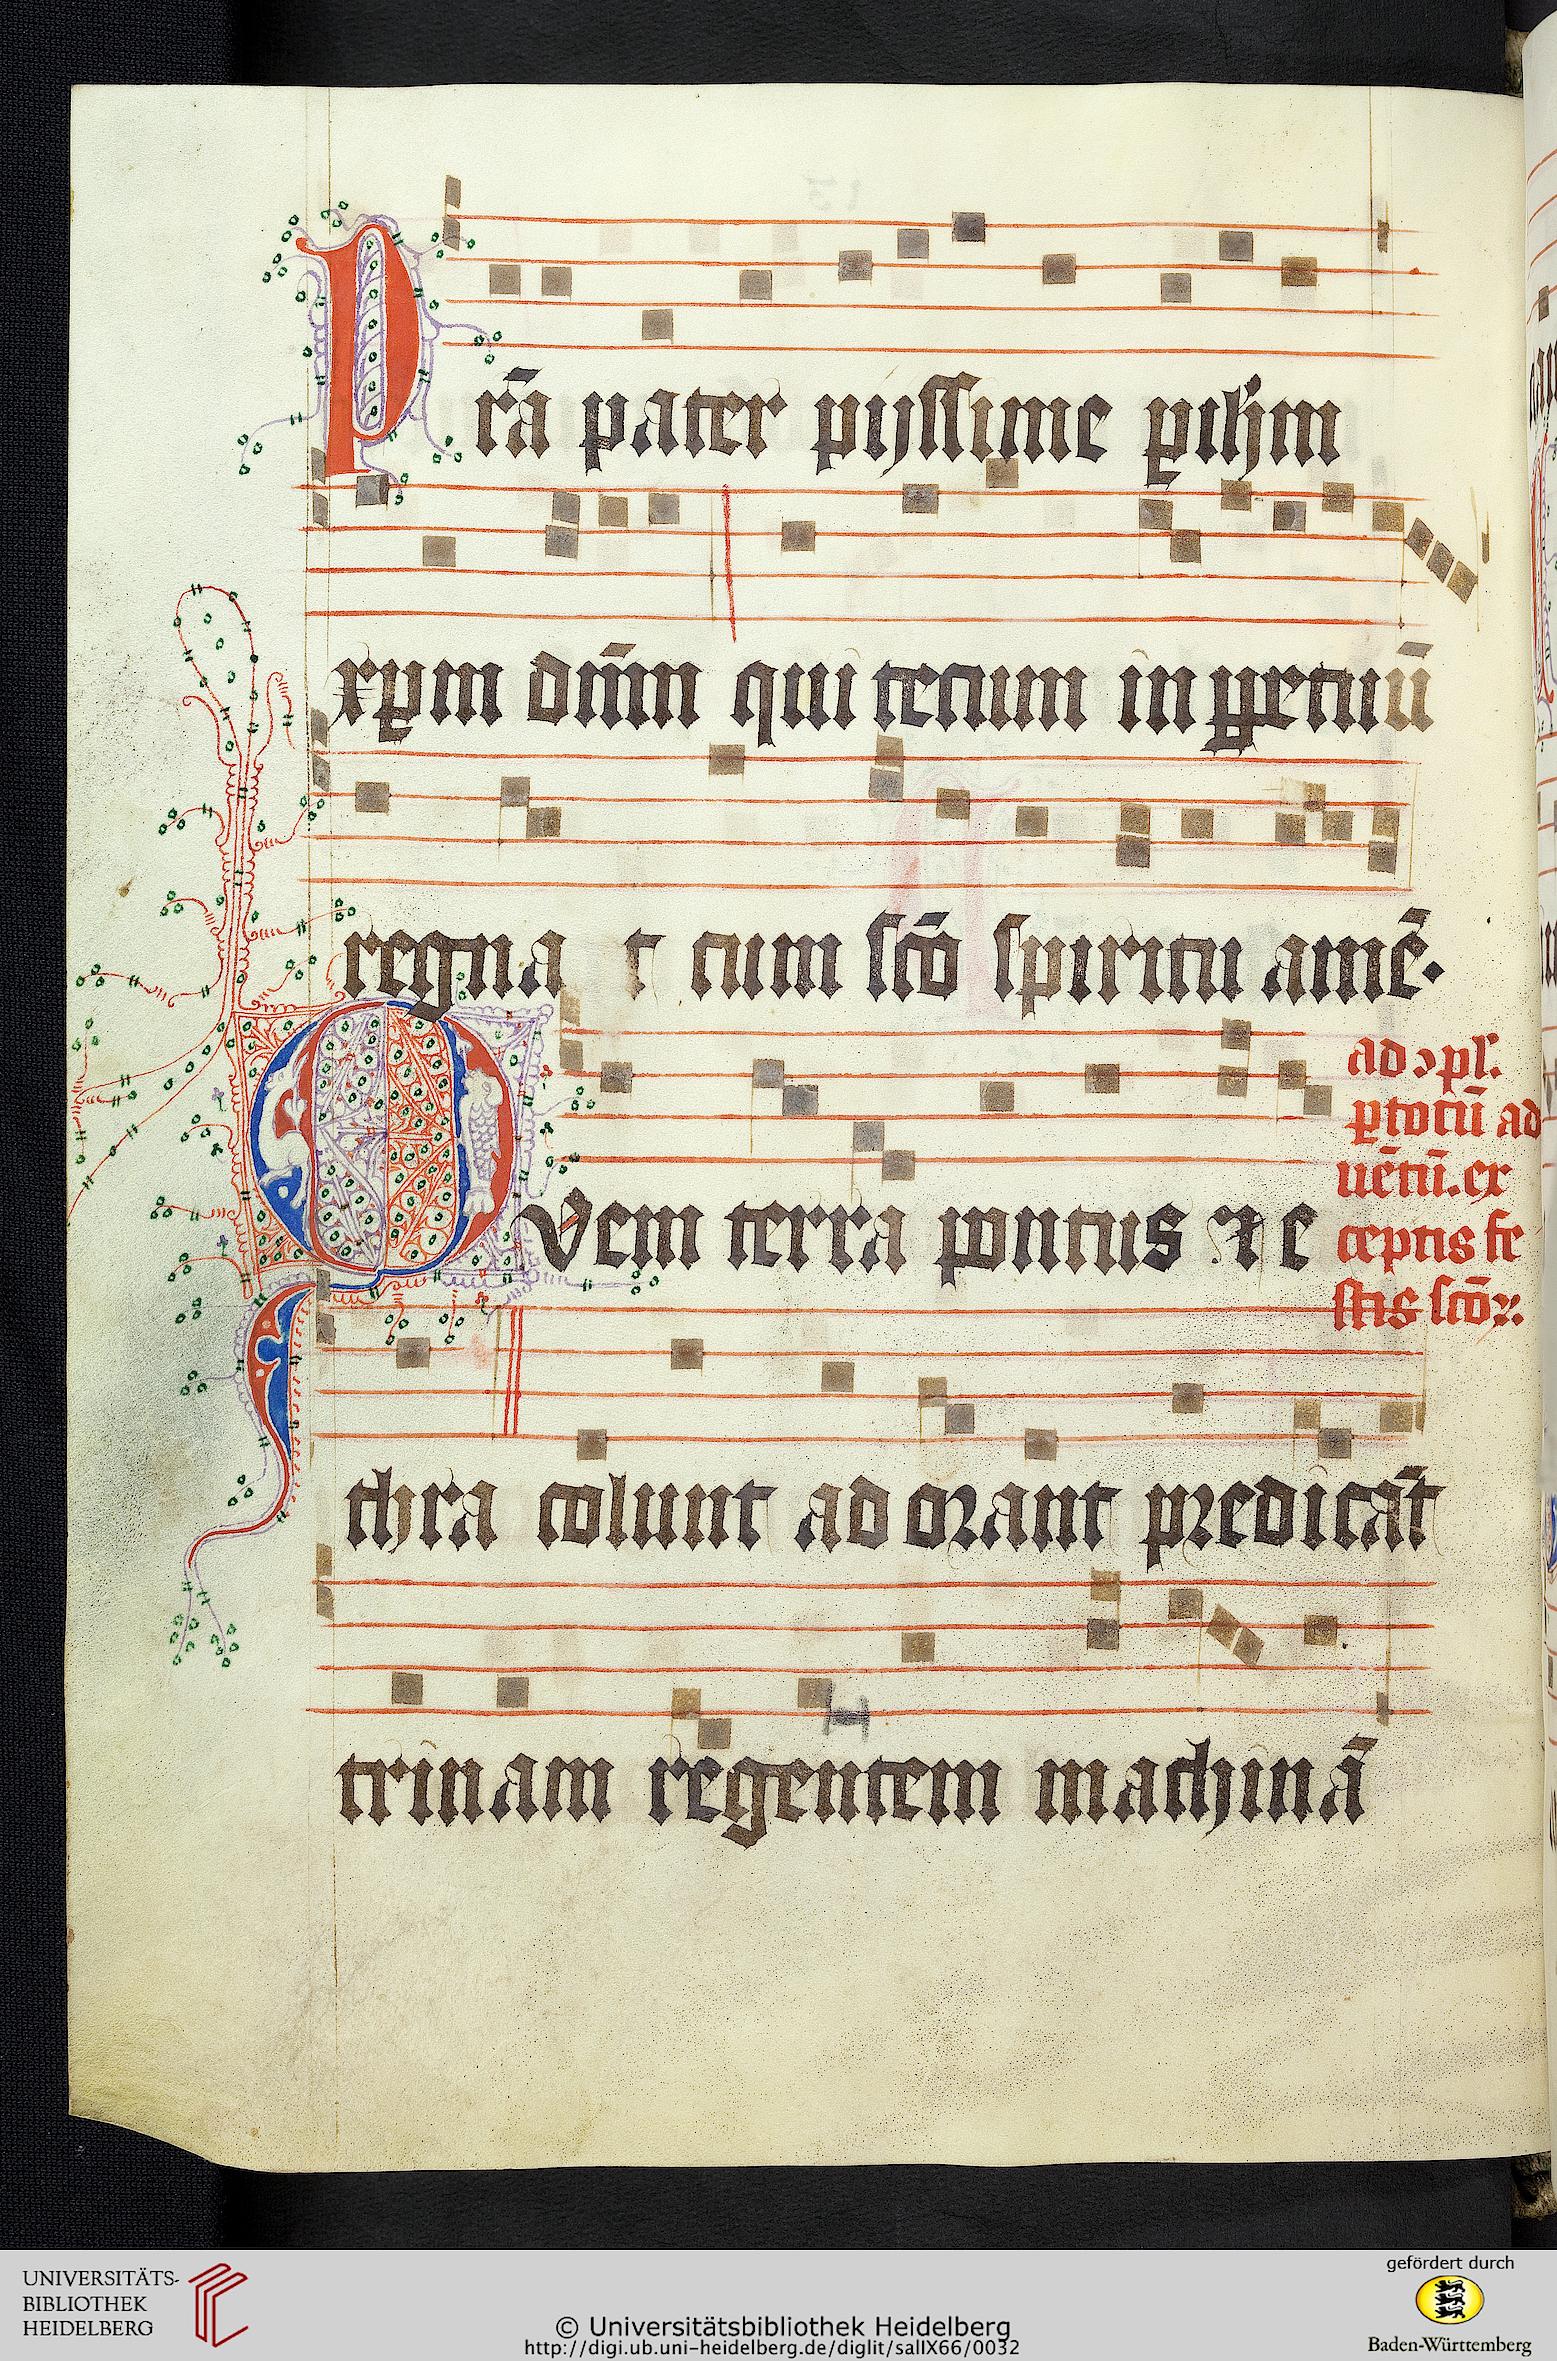 Prā pater pijssime p ihm
xpm dn̄m qui tecum in ppetuū
regna t cum sc̄o spiritu amē.
ad ɔpl.
Quem terra pontus ꝛ e
p totū ad
uētū. ex
ceptis fe
stis sc̄oꝝ.
thra colunt adorant predicāt
trinam regentem machinā
UNIVERSITÄTS-
BIBLIOTHEK
HEIDELBERG
© Universitätsbibliothek Heidelberg
http://digi.ub.uni-heidelberg.de/diglit/salIX66/0032
gefördert durch
Baden-Württemberg